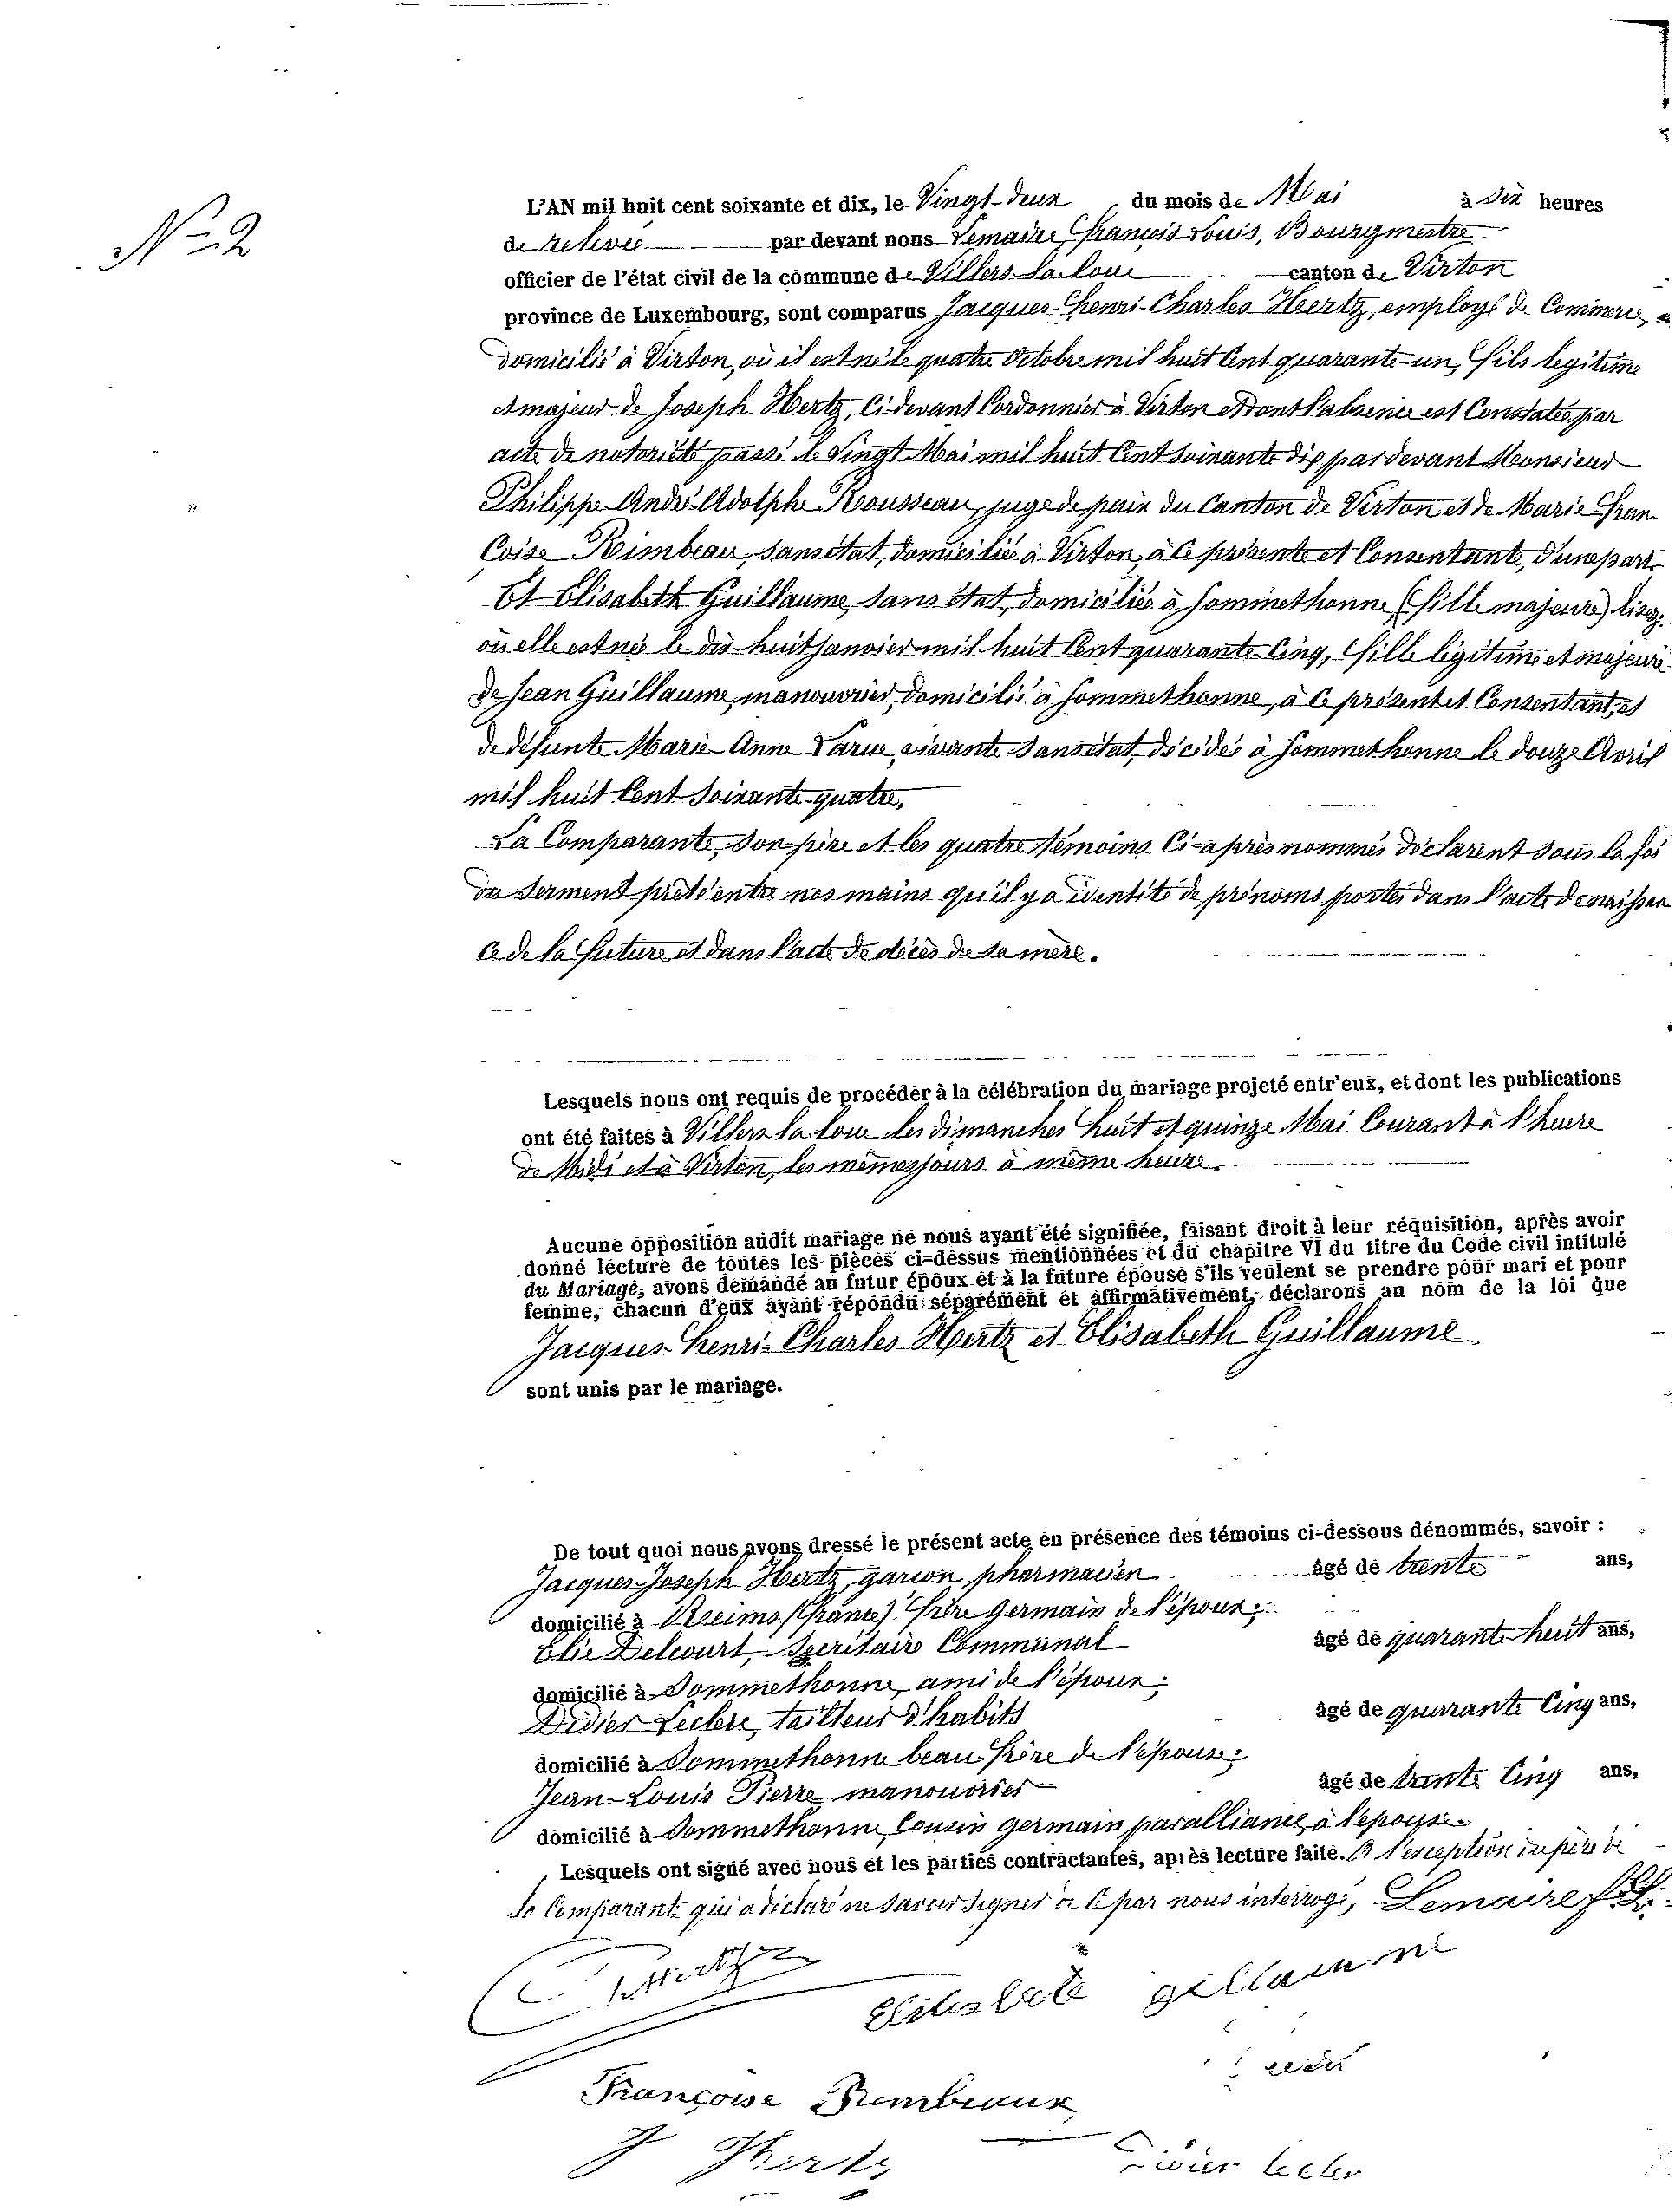 N° 2
L'AN mil huit cent soixante et dix, le Vingt-deux du mois de Mai à dix heures
de relevée par devant nous Lemaire, François Louis, Bourgmestre
officier de l'état civil de la commune de Villers-la-loue canton de Virton
province de Luxembourg, sont comparus Jacques-henri-Charles Hertz, employé de Commerce,
domicilié à Virton, où il est né le quatre octobre mil huit Cent quarante-un, fils legitime
et majeur de Joseph Hertz, Ci-devant Cordonnier à Virton et dont l'absence est Constatée par
acte de notoriété passé le Vingt Mai mil huit Cent Soixante dix par devant Monsieur
Philippe André Adolphe Rousseau, juge de paix du Canton de Virton et de Marie Fran
Coise Rimbeau, sans état, domiciliée à Virton, à ce présente et Consentante, d'une part.
Et Elisabeth Guillaume, sans état, domiciliée à Sommethonne, (fille majeure) lisez:
où elle est née le dix-huit Janvier mil-huit Cent quarante Cinq, fille légitime et majeure
de Jean Guillaume, manouvrier, domicilié à Sommethonne, à ce présent et Consentant, et
de défunte Marie Anne Larue, vivante sans état, décédée à Sommethonne le douze Avril
mil huit Cent Soixante-quatre.
La Comparante, son père et les quatre témoins Ci-après nommés déclarent sous la foi
du Serment prêté entre nos mains qu'il y a identité de prénoms portés dans l'acte de naissan
ce de la future et dans l'acte de décès de sa mère.
Lesquels nous ont requis de procéder à la célébration du mariage projeté entr'eux, et dont les publications
ont été faites à Villers-la-loue les dimanches huit et quinze Mai Courant à l'heure
de Midi et à Virton, les mêmes jours à même heure.
Aucune opposition audit mariage ne nous ayant été signifiée, faisant droit à leur réquisition, après avoir
donné lecture de toutes les pièces ci-dessus mentionnées et du chapitre VI du titre du Code civil intitulé
du Mariage, avons demandé au futur époux et à la future épouse s'ils veulent se prendre pour mari et pour
femme, chacun d'eux ayant répondu séparément et affirmativement, déclarons au nom de la loi que
Jacques-henri-Charles Hertz et Elisabeth Guillaume
sont unis par le mariage.
De tout quoi nous avons dressé le présent acte en présence des témoins ci-dessous dénommés, savoir :
Jacques-Joseph Hertz, garçon pharmacien âgé de trente ans,
domicilié à Reims (france) frère germain de l'époux;
Elie Delcourt, Secrétaire Communal âgé de quarante-huit ans,
domicilié à Sommethonne, ami de l'époux;
Didier Leclerc, tailleur d'habits âgé de quarante Cinq ans,
domicilié à Sommethonne beau-frère de l'épouse;
Jean-Louis Pierre, manouvrier âgé de trente Cinq ans,
domicilié à Sommethonne, Cousin germain par alliance, à l'épouse.
Lesquels ont signé avec nous et les parties contractantes, après lecture faite. A l'exception du père de
la Comparante qui a déclaré ne savoir signer à ce par nous interrogé, Lemaire f. L.
Hertz
gillaume
Françoise Rimbeaux
J Hertz